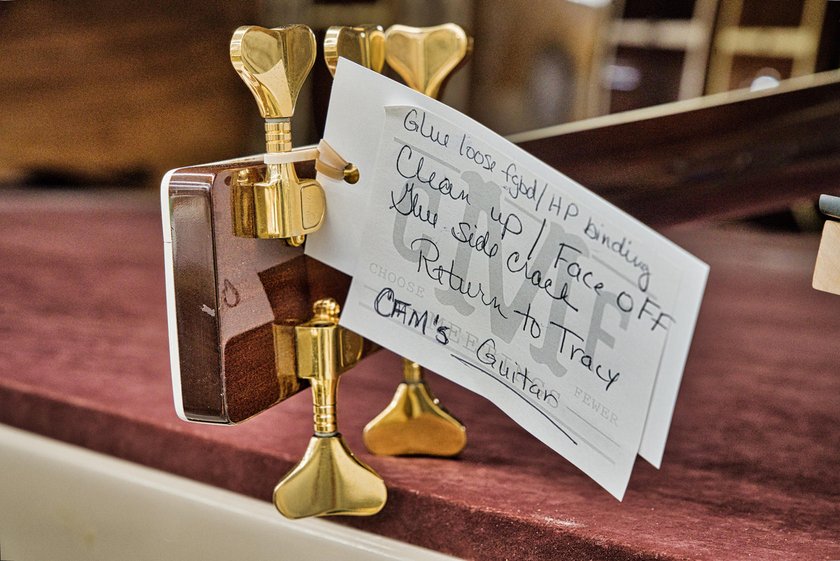 Glue loose fgbd/HP binding
Clean up / Face OFF
Glue side crack
Return to Tracy
CFM's Guitar
CHOOSE
CMF
FEWER